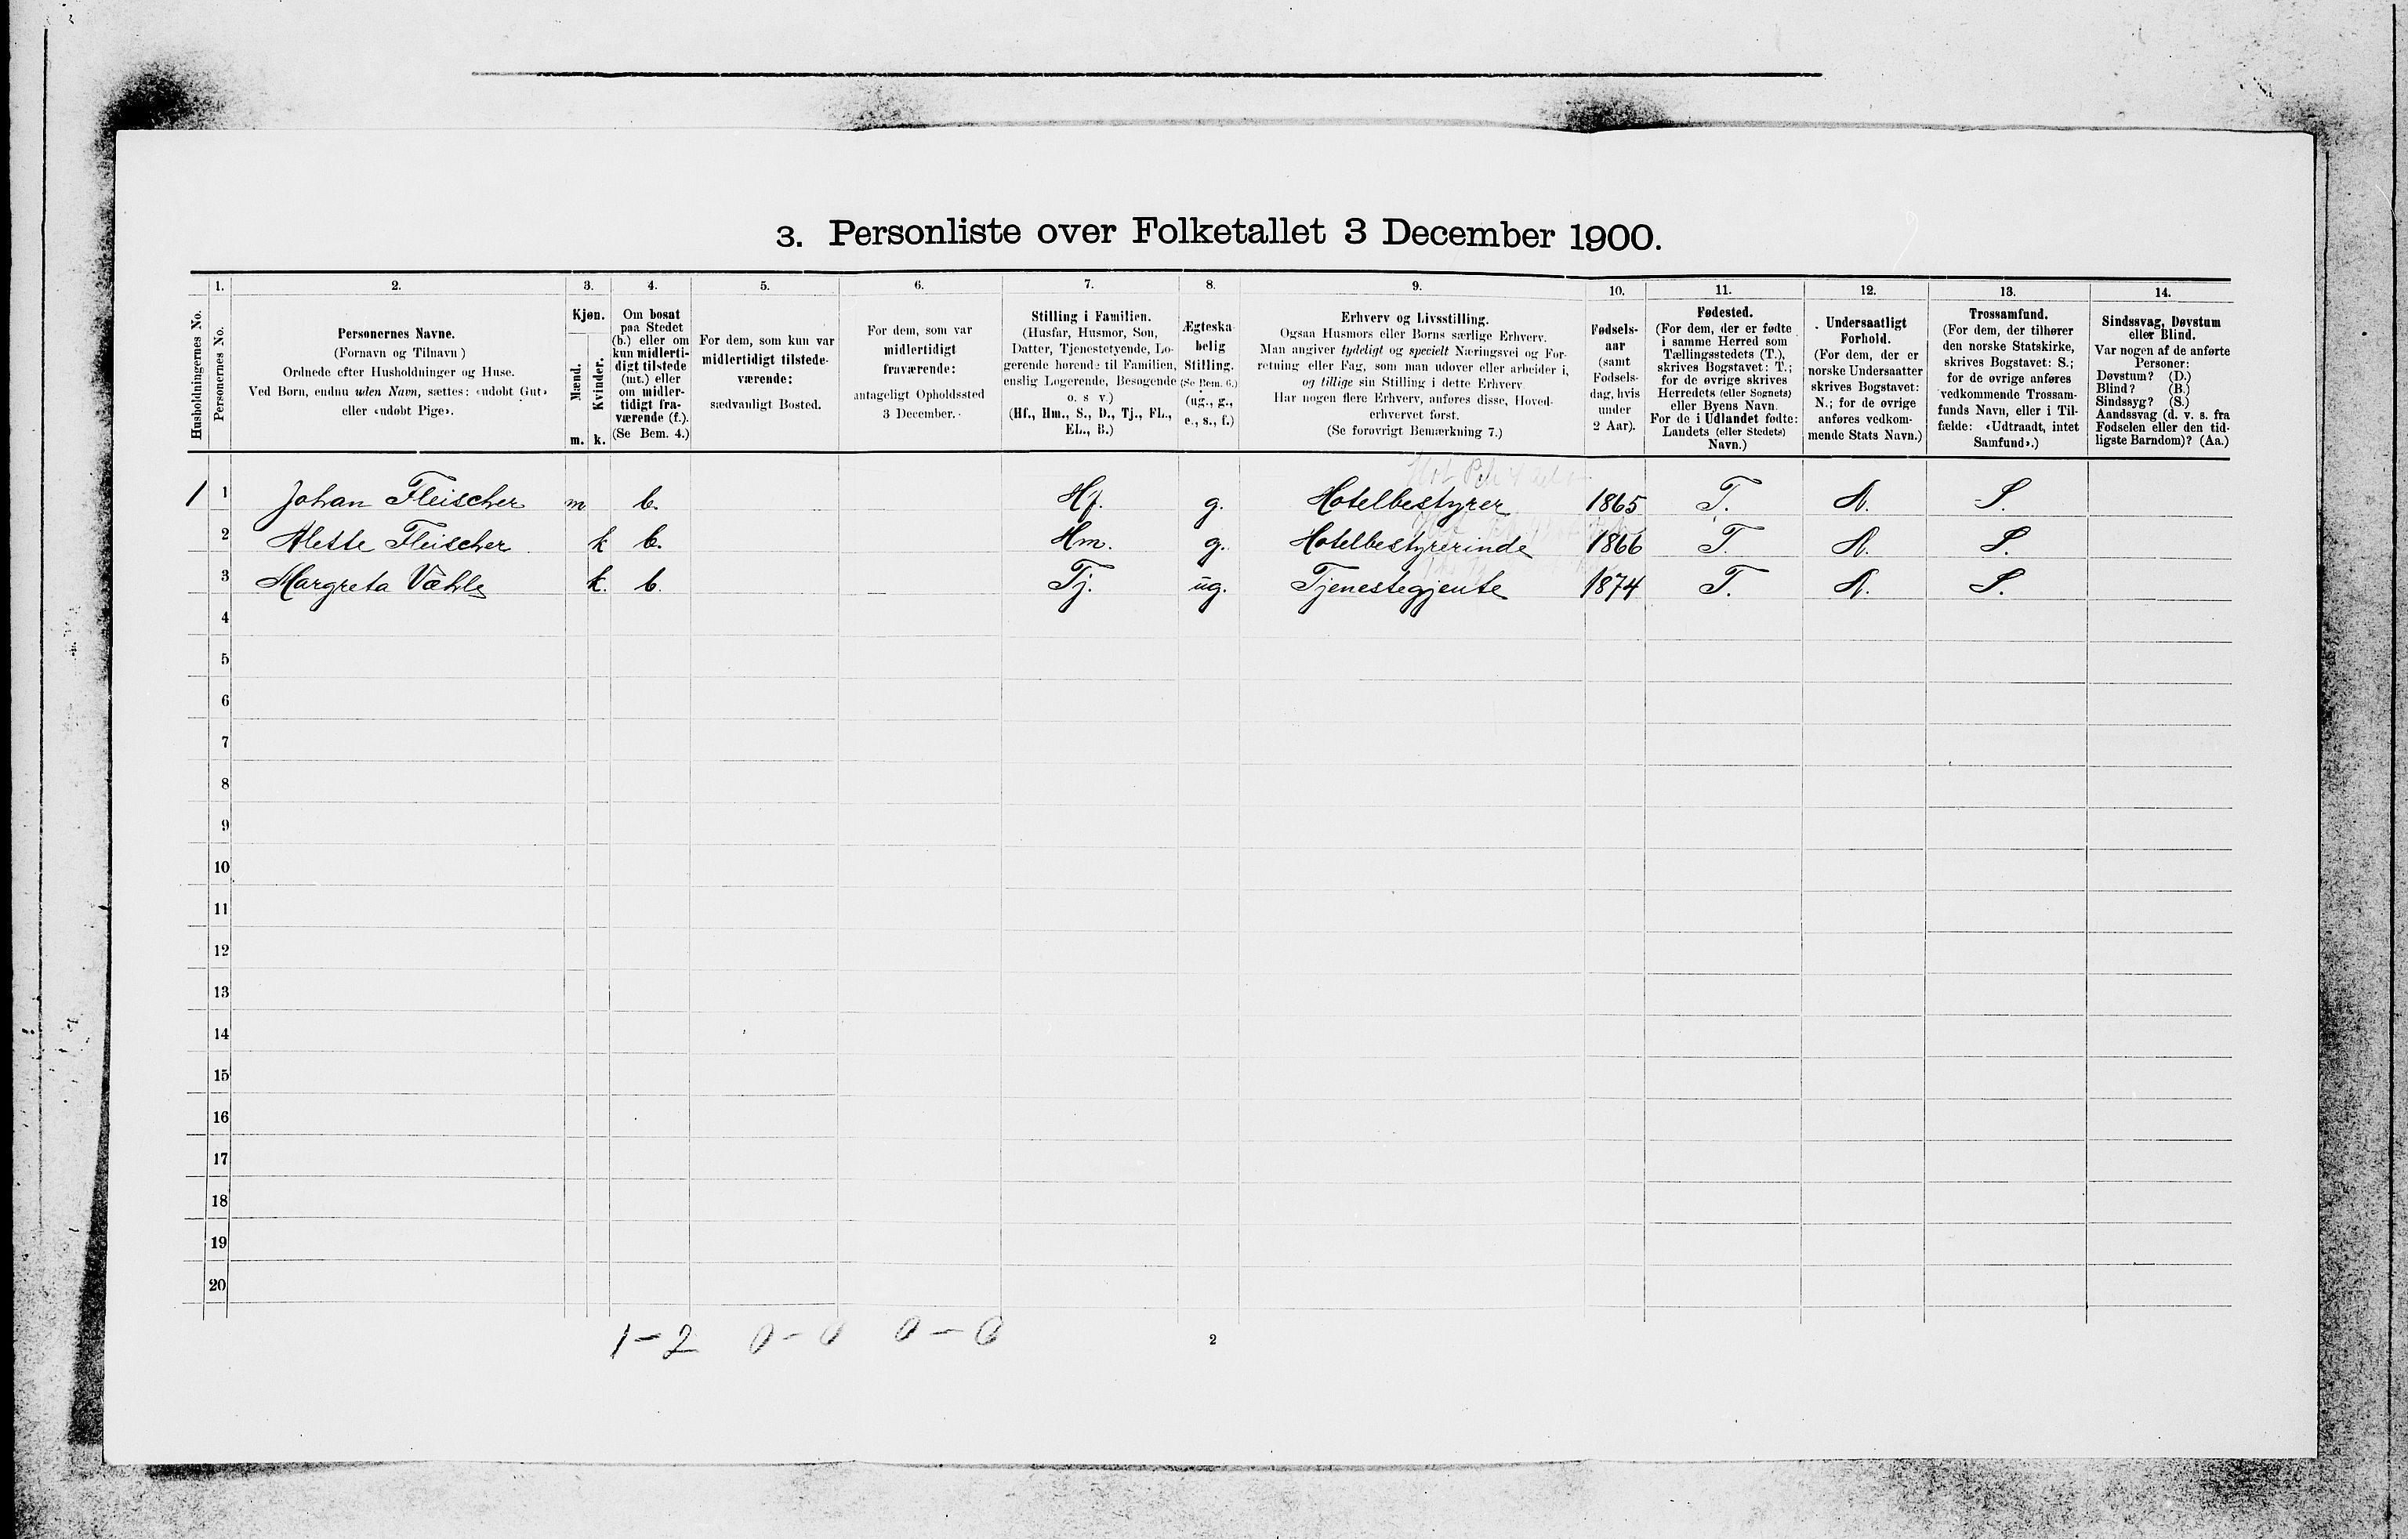 3. Personliste over Folketallet 3 December 1900.
1. 2. 3. 4. 5. 6. 7. 8. 9. 10. 11. 12. 13. 14.
Husholdningernes No.
Personernes No.
Personernes Navne.
(Fornavn og Tilnavn)
Ordnede efter Husholdninger og Huse.
Ved Børn, endnu uden Navn, sættes: «udøbt Gut»
eller «udøbt Pige».
Kjøn.
Mænd.
Kvinder.
m. k.
Om bosat
paa Stedet
(b.) eller om
kun midlerti-
digt tilstede
(mt.) eller
om midler-
tidigt fra-
værende (f.).
(Se Bem. 4.)
For dem, som kun var
midlertidigt tilstede-
værende:
sædvanligt Bosted.
For dem, som var
midlertidigt
fraværende:
antageligt Opholdssted
3 December.
Stilling i Familien.
(Husfar, Husmor, Søn,
Datter, Tjenestetyende, Lo-
gerende hørende til Familien,
enslig Logerende, Besøgende
o. s v.)
(Hf., Hm., S., D., Tj., FL.,
EL., B.)
Ægteska-
belig
Stilling.
(Se Bem. 6.)
(ug., g.,
e., s., f.)
Erhverv og Livsstilling.
Ogsaa Husmors eller Børns særlige Erhverv.
Man angiver tydeligt og specielt Næringsvei og For-
retning eller Fag, som man udøver eller arbeider i,
og tillige sin Stilling i dette Erhverv.
Har nogen flere Erhverv, anføres disse, Hoved-
erhvervet først.
(Se forøvrigt Bemærkning 7.)
Fødsels-
aar
(samt
Fødsels-
dag, hvis
under
2 Aar).
Fødested.
(For dem, der er fødte
i samme Herred som
Tællingsstedets (T.),
skrives Bogstavet: T.;
for de øvrige skrives
Herredets (eller Sognets)
eller Byens Navn.
For de i Udlandet fødte:
Landets (eller Stedets)
Navn.)
Undersaatligt
Forhold.
(For dem, der er
norske Undersaatter
skrives Bogstavet:
N.; for de øvrige
anføres vedkom-
mende Stats Navn.)
Trossamfund.
(For dem, der tilhører
den norske Statskirke,
skrives Bogstavet: S.;
for de øvrige anføres
vedkommende Trossam-
funds Navn, eller i Til-
fælde: «Udtraadt, intet
Samfund».)
Sindssvag, Døvstum
eller Blind.
Var nogen af de anførte
Personer:
Døvstum? (D.)
Blind? (B.)
Sindssyg? (S.)
Aandssvag (d. v. s. fra
Fødselen eller den tid-
ligste Barndom)? (Aa.)
1 1 Johan Fleischer m b. Hf. g. Hotelbestyrer 1865 T. N. S.
2 Alette Fleischer k b. Hm. g. Hotelbestyrerinde 1866 T. N. S.
3 Margreta Væhle k. b. Tj. ug. Tjenestegjente 1874 T. N. S.
4
5
6
7
8
9
10
11
12
13
14
15
16
17
18
19
20
1-2 0-0 0-0
2